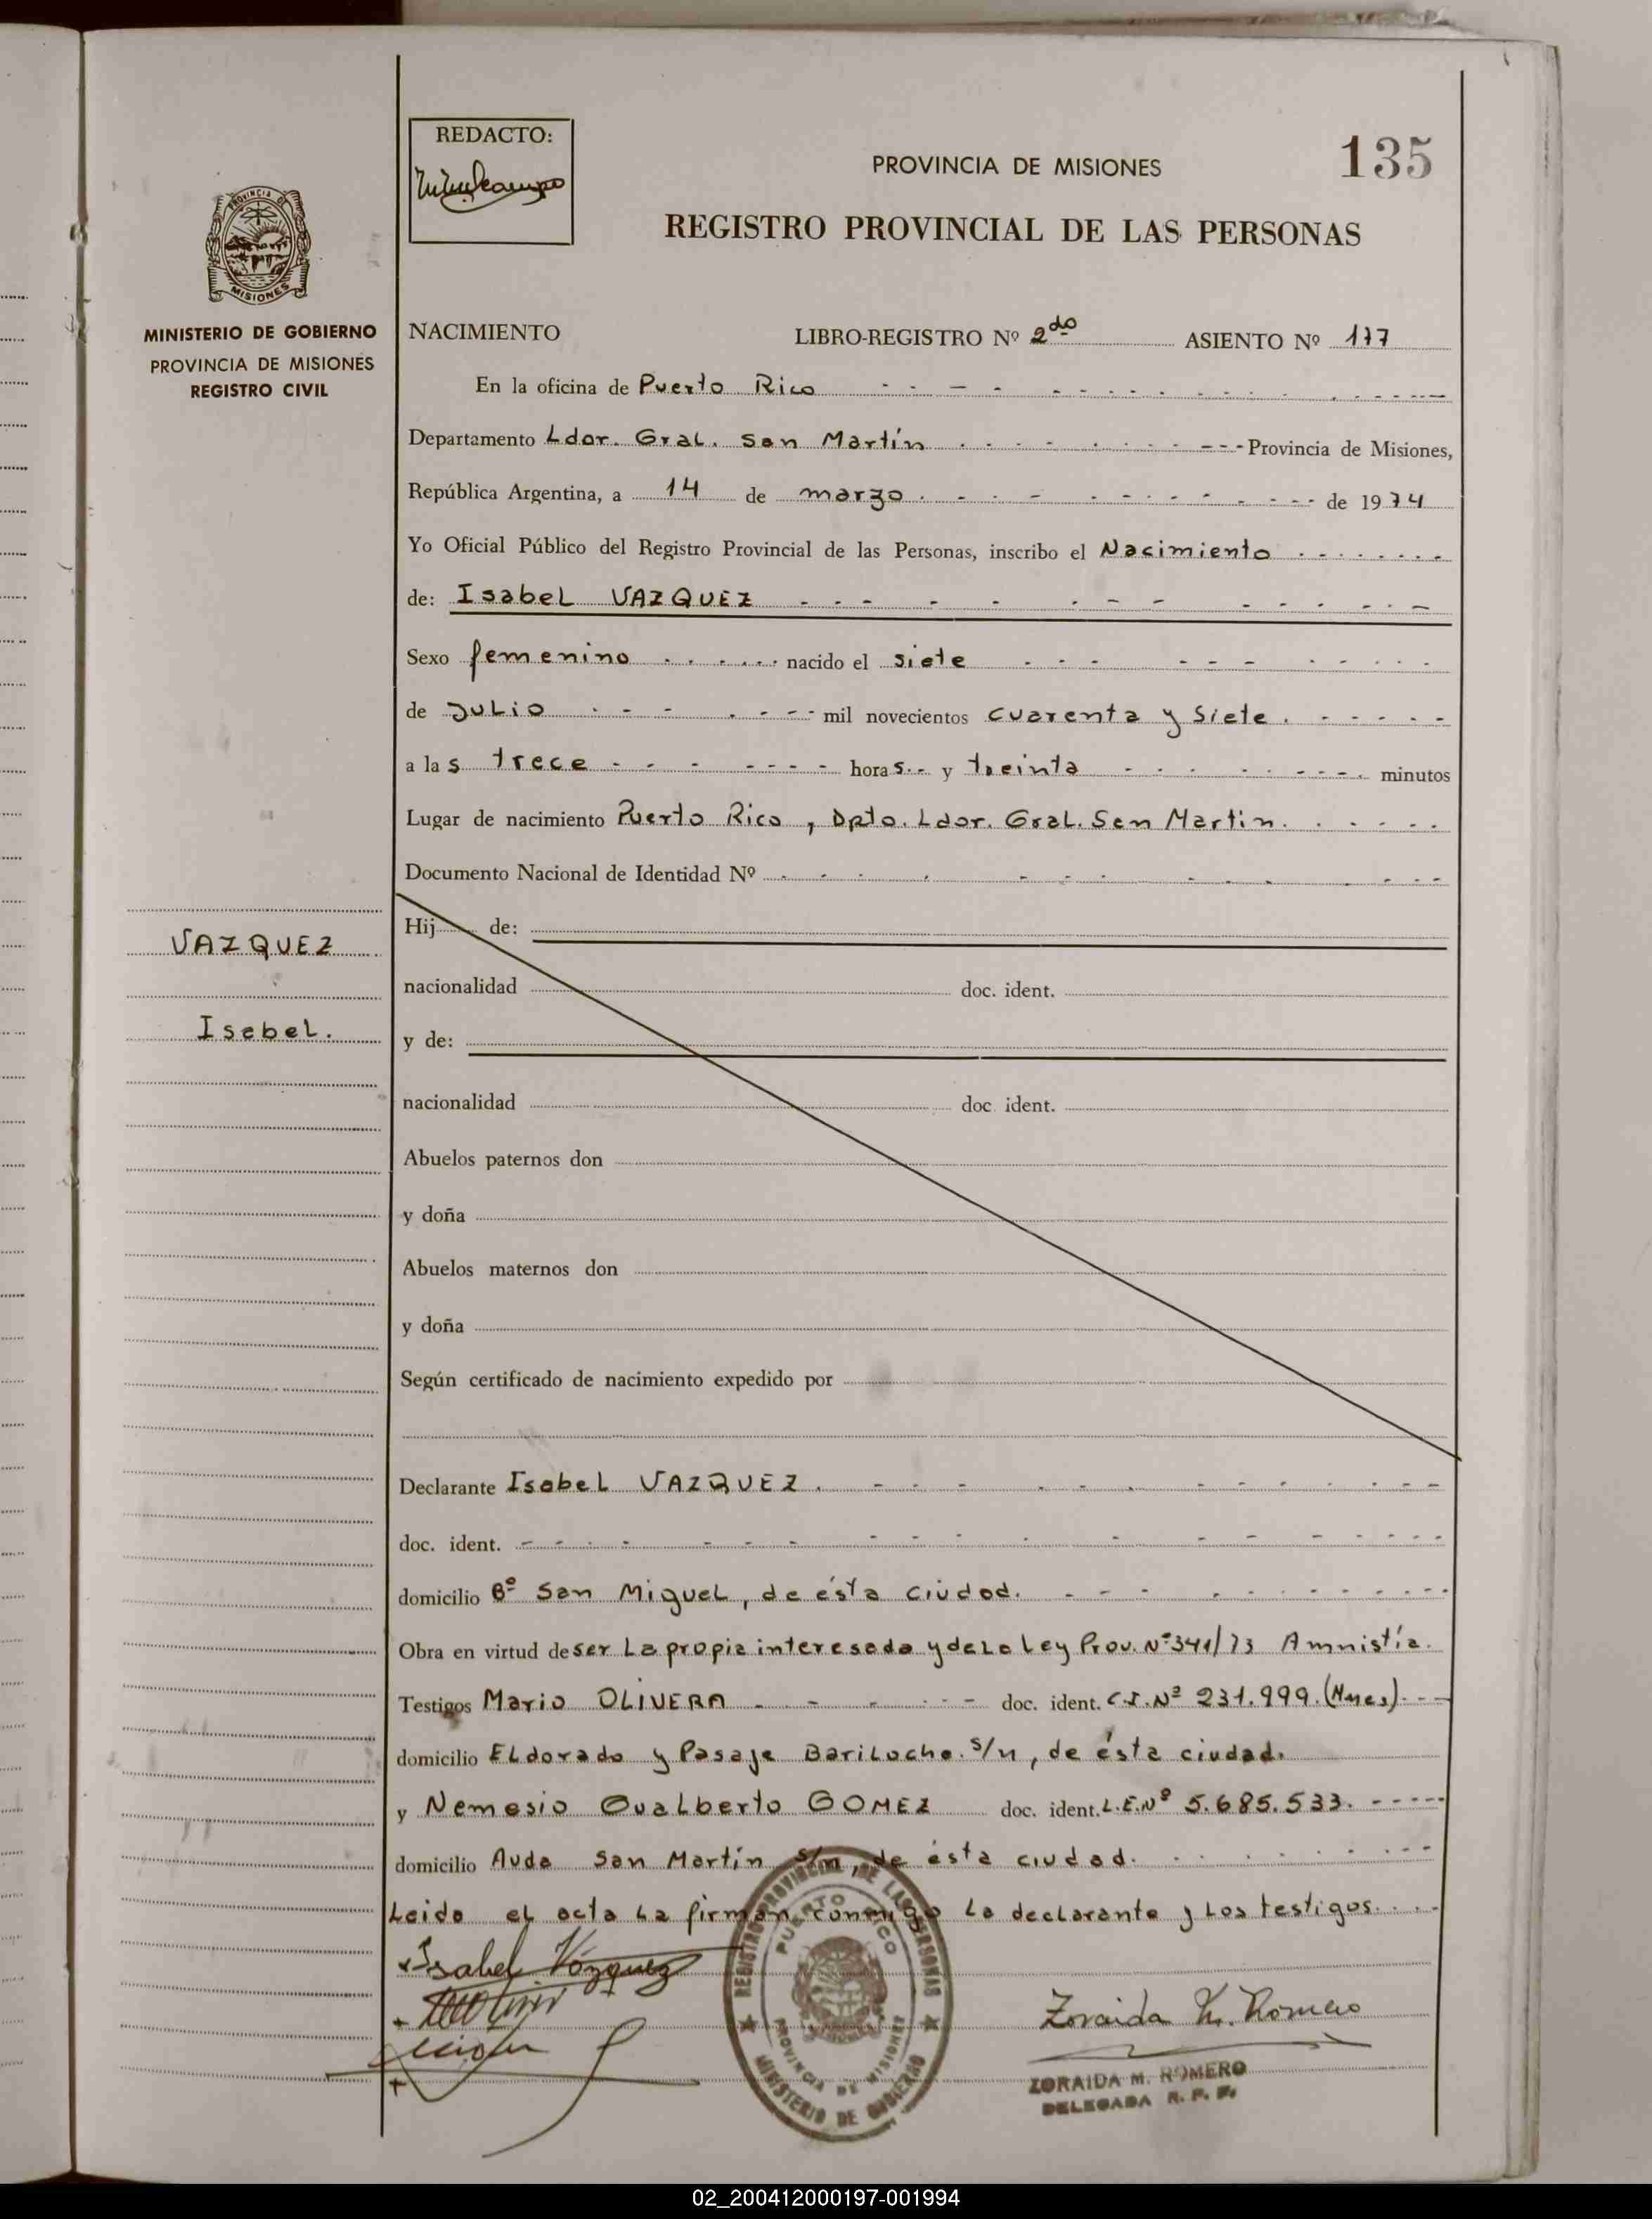 REDACTO:
135
PROVINCIA DE MISIONES
REGISTRO PROVINCIAL DE LAS PERSONAS
PROVINCIA DE
MISIONES
MINISTERIO DE GOBIERNO
PROVINCIA DE MISIONES
REGISTRO CIVIL
NACIMIENTO LIBRO-REGISTRO Nº 2do ASIENTO Nº 177
En la oficina de Puerto Rico
Departamento Ldor. Gral. San Martín Provincia de Misiones,
República Argentina, a 14 de marzo de 1974
Yo Oficial Público del Registro Provincial de las Personas, inscribo el Nacimiento
de: Isabel VAZQUEZ
Sexo femenino nacido el siete
de Julio mil novecientos cuarenta y siete.
a las trece horas y treinta minutos
Lugar de nacimiento Puerto Rico, Dpto. Ldor. Gral. San Martin.
Documento Nacional de Identidad Nº
VAZQUEZ
Isabel.
Hij de:
nacionalidad doc. ident.
y de:
nacionalidad doc. ident.
Abuelos paternos don
y doña
Abuelos maternos don
y doña
Según certificado de nacimiento expedido por
Declarante Isabel VAZQUEZ.
doc. ident.
domicilio Bº San Miguel, de ésta ciudad.
Obra en virtud de ser la propia interesada y de la ley Prov. Nº 341/73 Amnistía.
Testigos Mario OLIVERA doc. ident. C.I. Nº 231.999. (Mnes).
domicilio Eldorado y Pasaje Bariloche s/n, de ésta ciudad.
y Nemesio Gualberto GOMEZ doc. ident. L.E.Nº 5.685.533.
domicilio Avda San Martín s/n, de ésta ciudad.
Leido el acta la firman conmigo la declarante y los testigos.
Isabel Vázquez
REGISTRO PROVINCIAL DE LAS PERSONAS
PUERTO RICO
PROVINCIA DE MISIONES
MINISTERIO DE GOBIERNO
Zoraida M. Romero
ZORAIDA M. ROMERO
DELEGADA R. P. P.
02_200412000197-001994